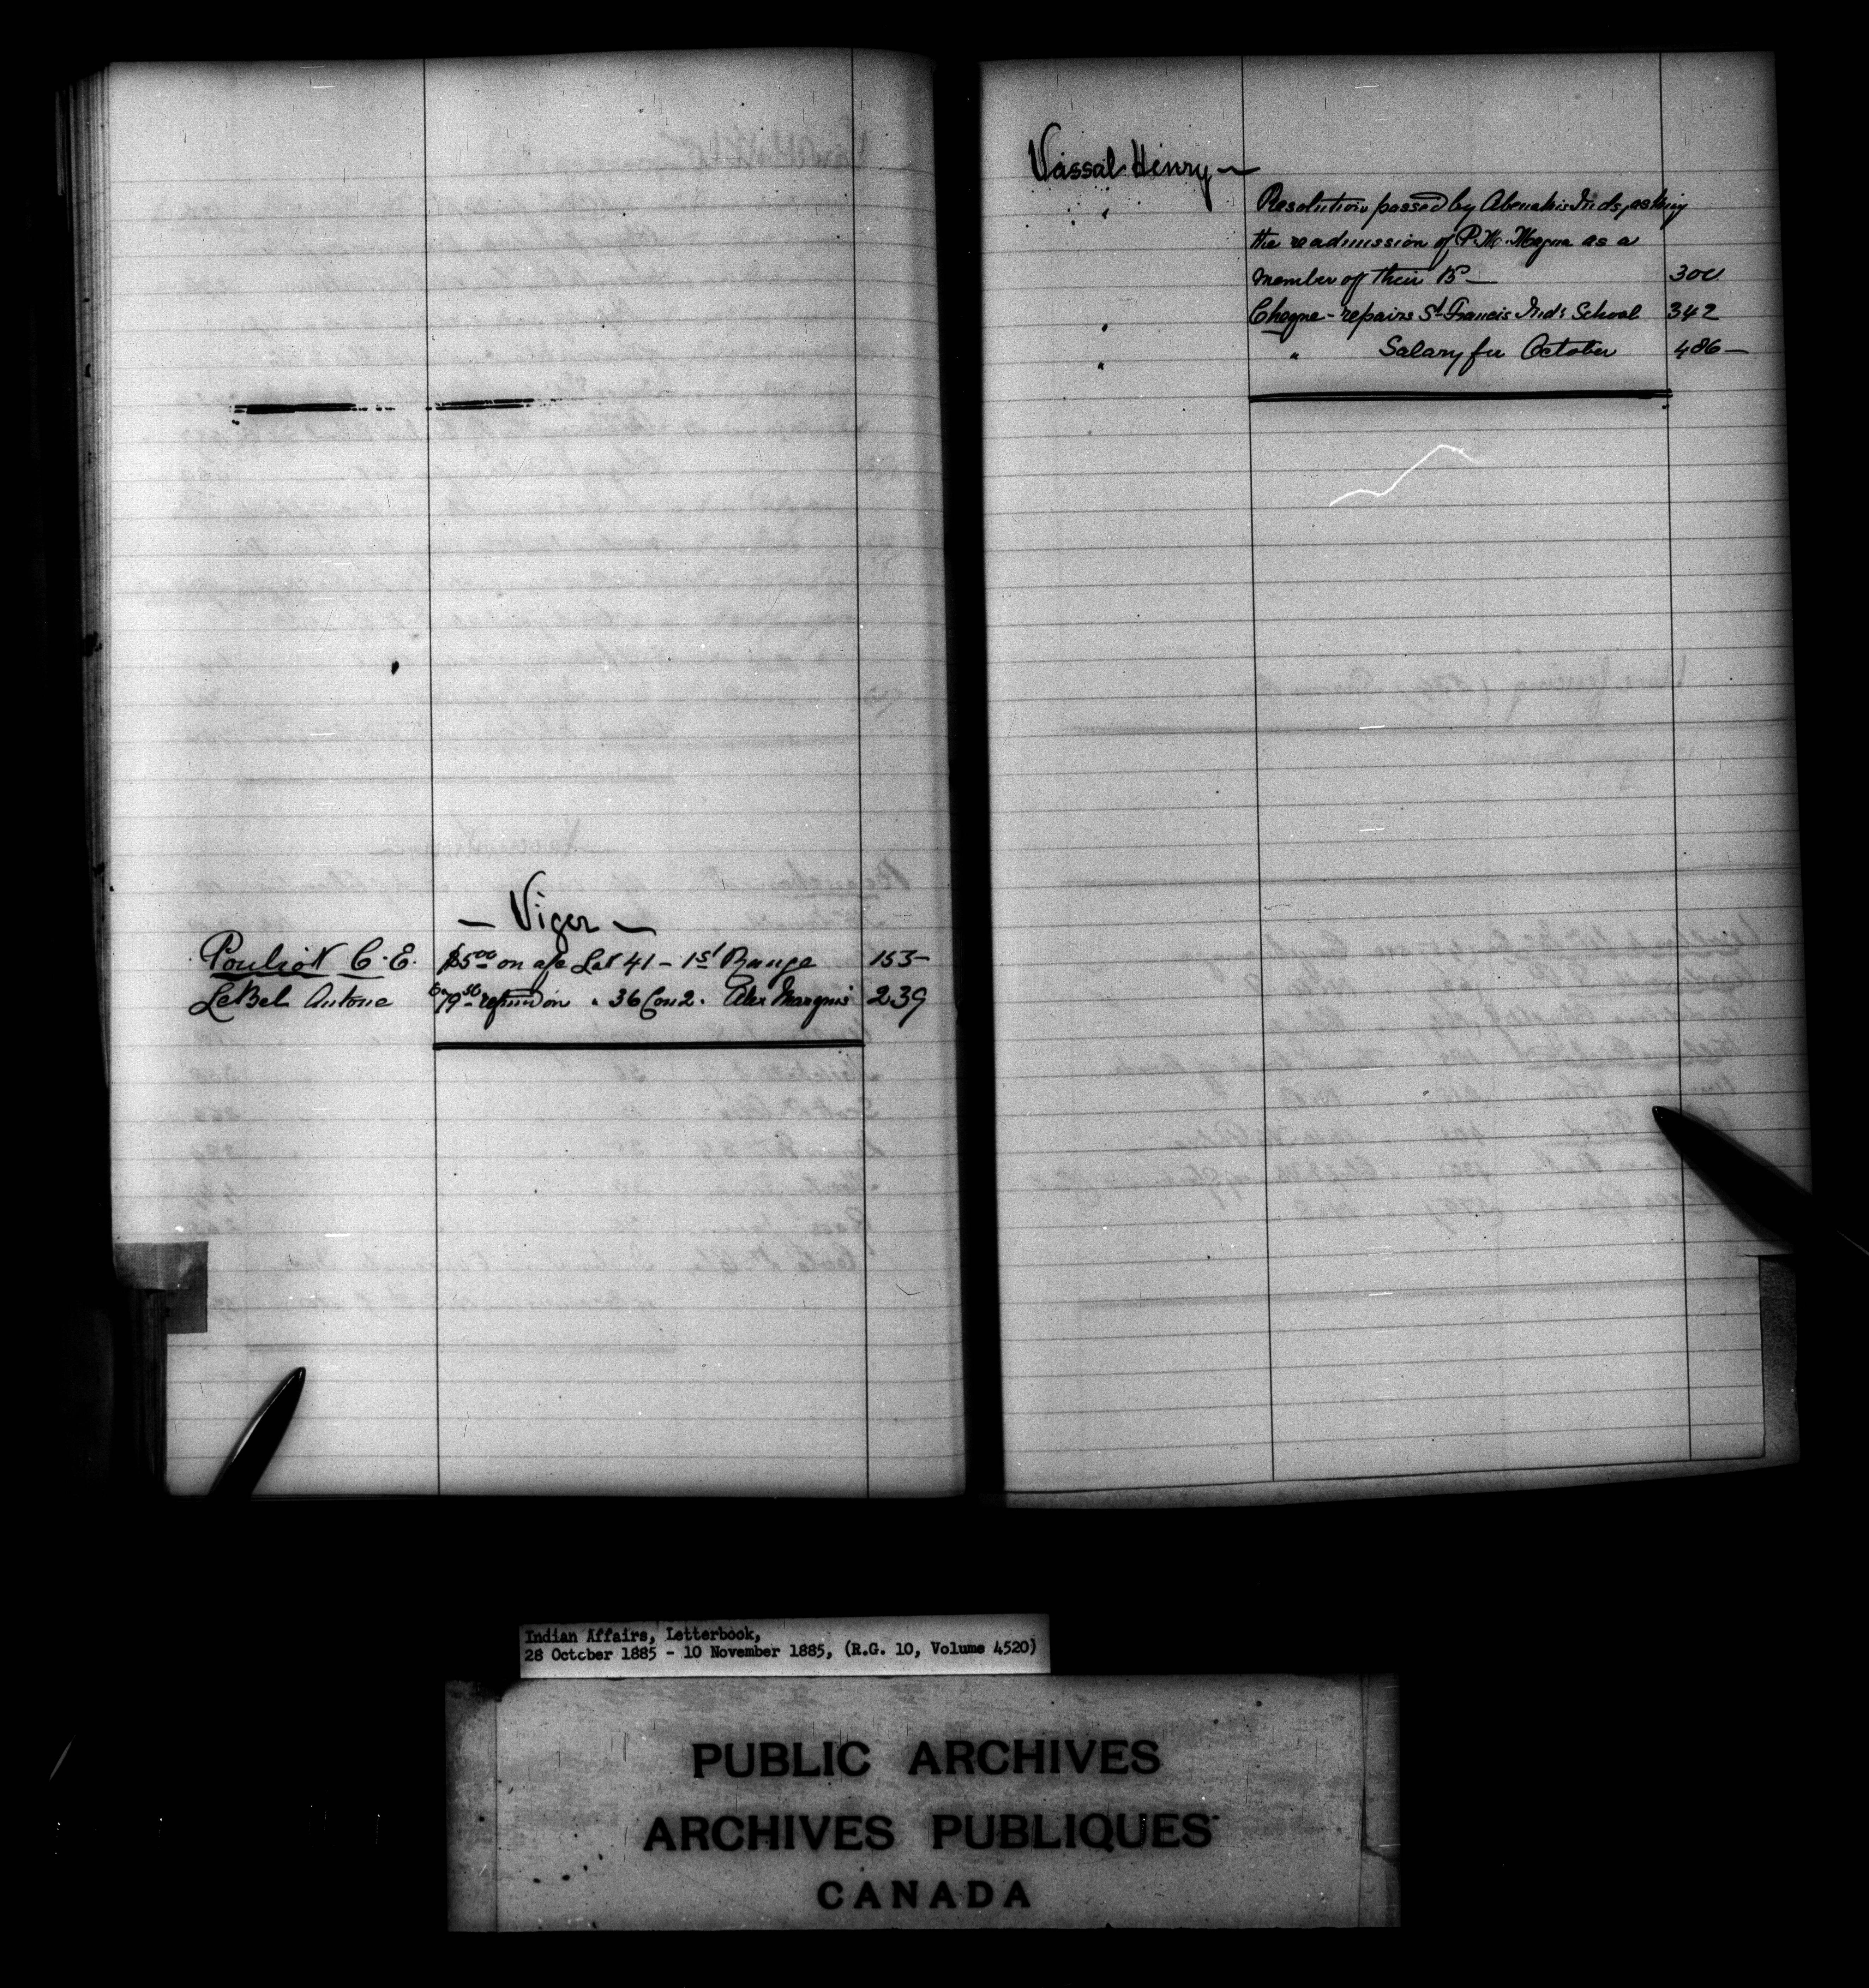 — Viger —
Pouliot C. E. $5.00 on a/c Lot 41 — 1st Range 153 —
LeBel Antone $79.50 refund on " 36 Con 2. Alex Marquis 239
Vassal Henry —
" Resolution passed by Abenakis Inds, asking
the readmission of P. M. Masqua as a
member of their Bd — 300
" Cheque — repairs St Francis Ind's School 342
" " Salary for October 486 —
Indian Affairs, Letterbook,
28 October 1885 - 10 November 1885, (R.G. 10, Volume 4520)
PUBLIC ARCHIVES
ARCHIVES PUBLIQUES
CANADA